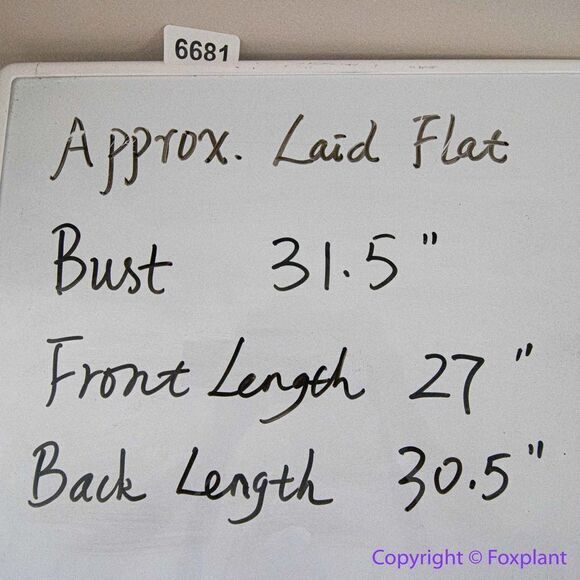 6681
Approx. Laid Flat
Bust 31.5"
Front Length 27"
Back Length 30.5"
Copyright © Foxplant